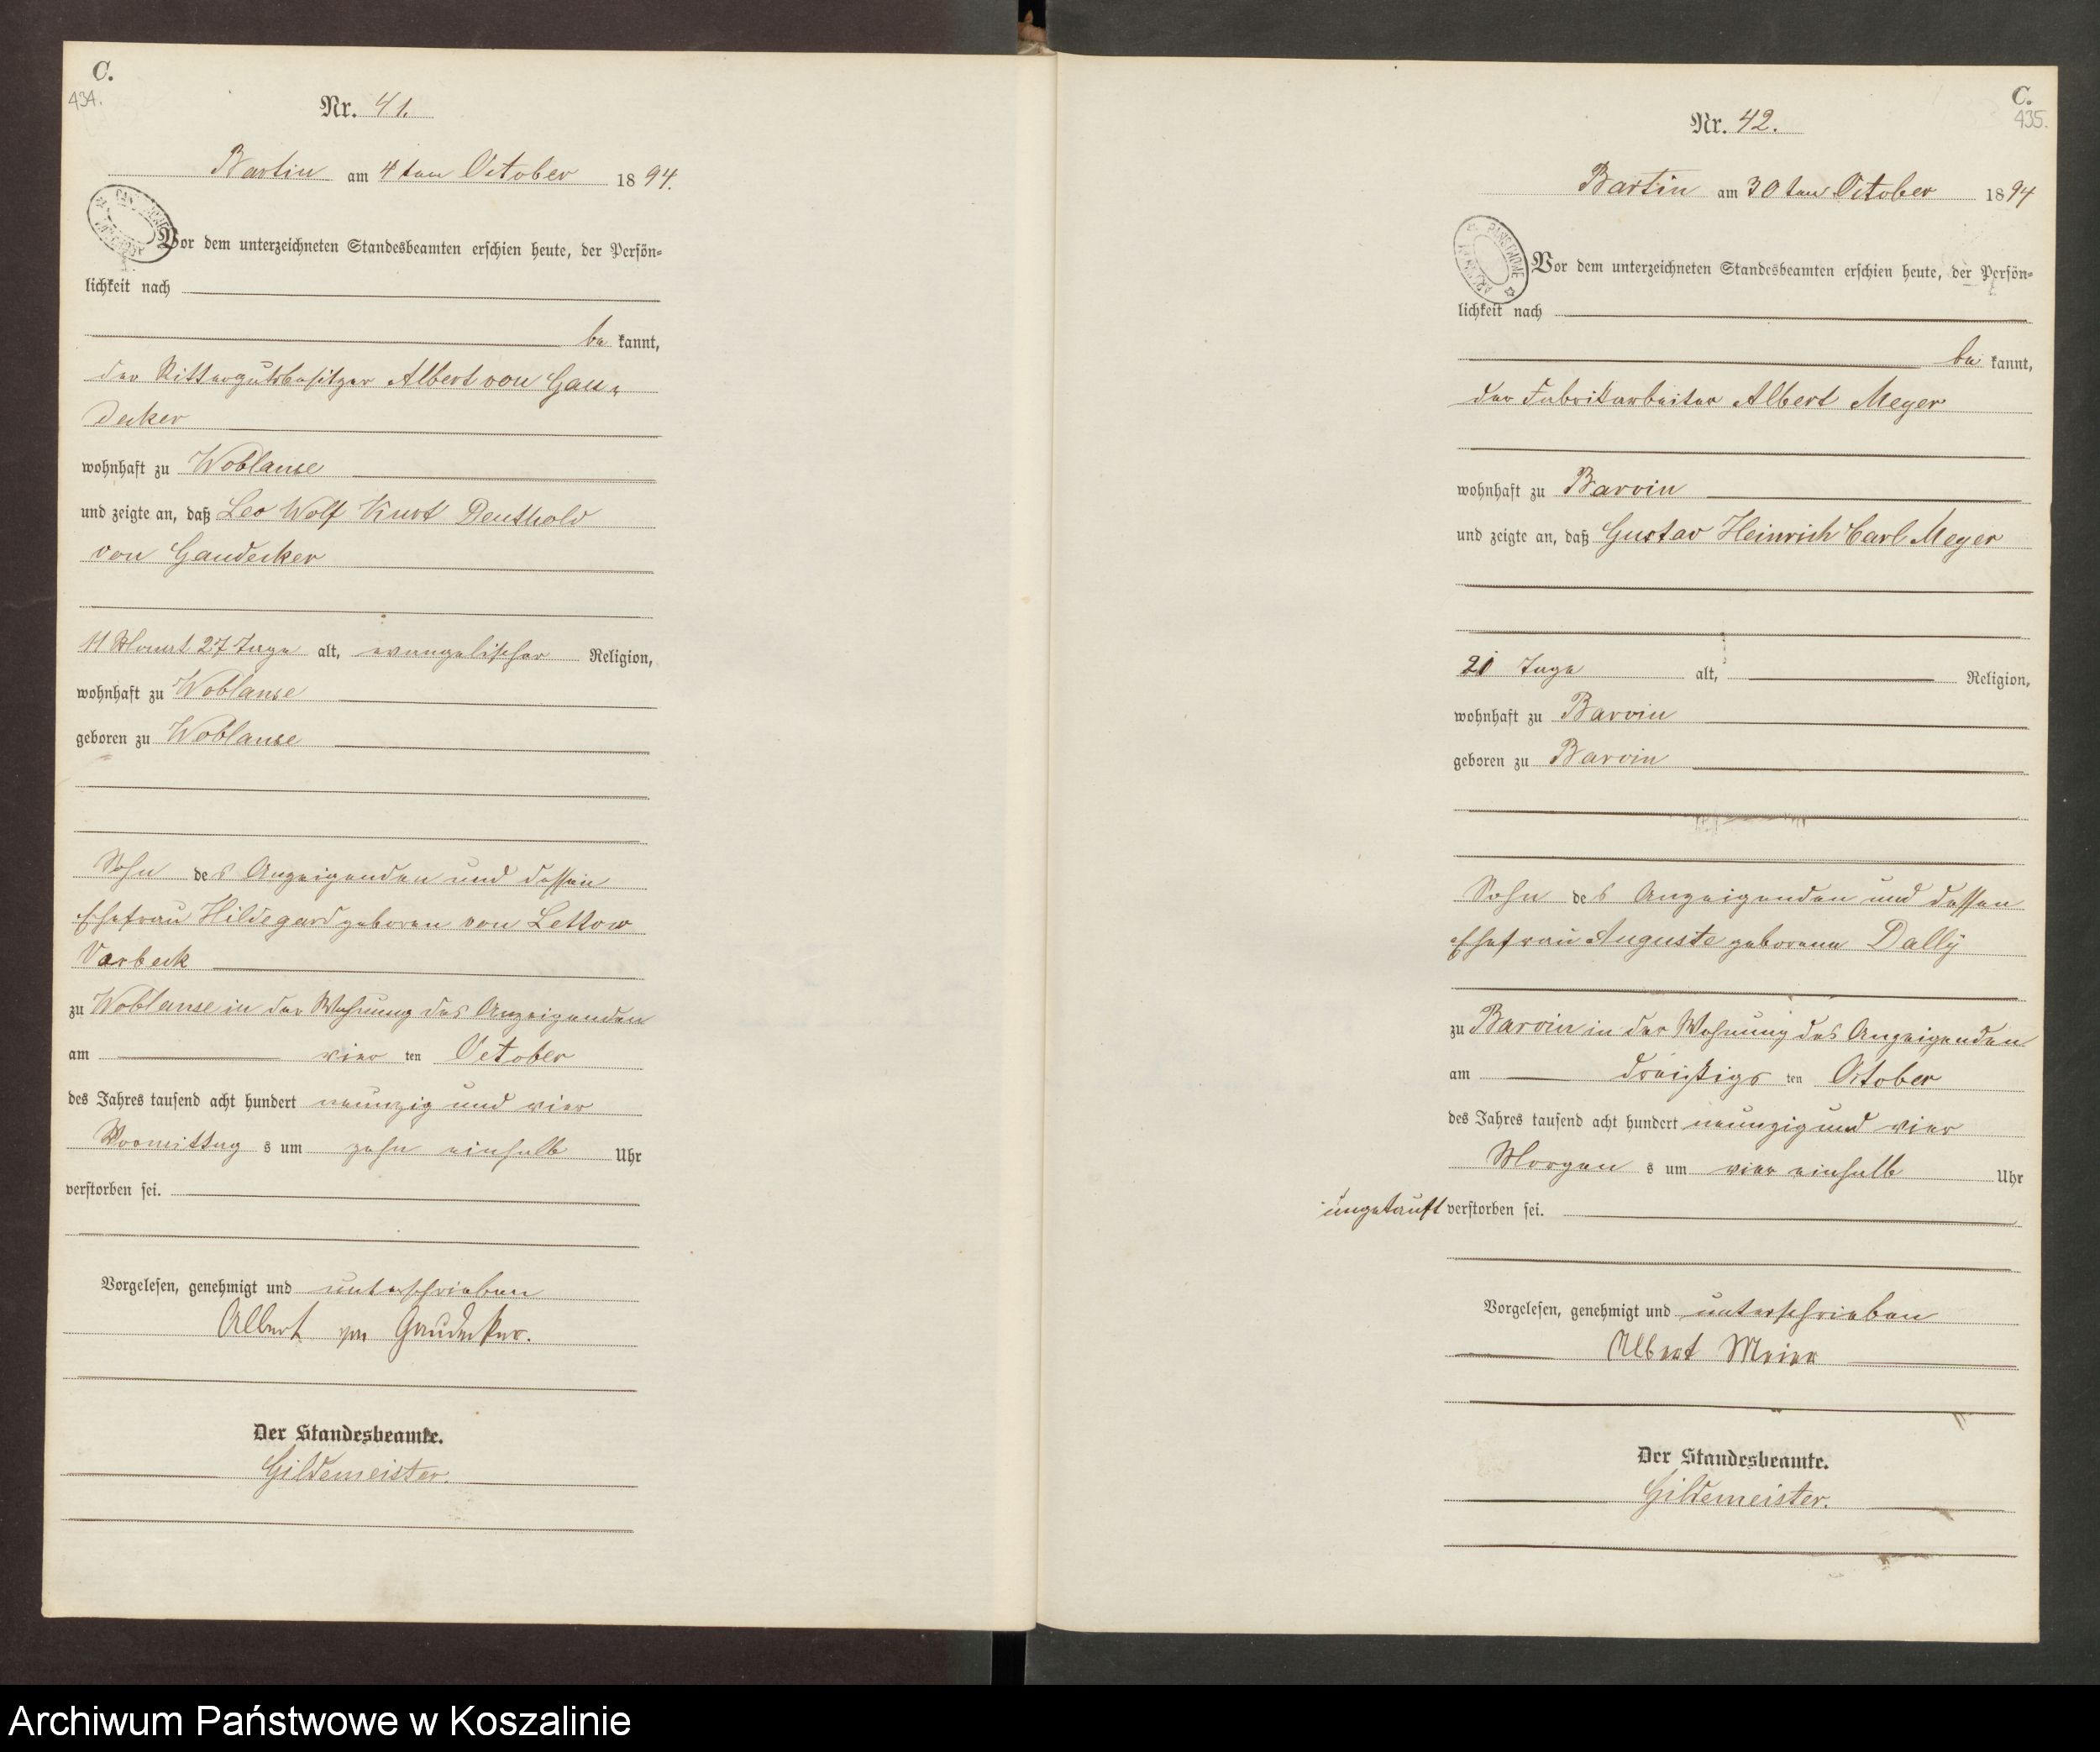 C.
434.
Nr. 41.
Bartin am 4ten October 1894.
Vor dem unterzeichneten Standesbeamten erschien heute, der Persön=
lichkeit nach
be kannt,
der Rittergutsbesitzer Albert von Gau„
decker
wohnhaft zu Woblanse
und zeigte an, daß Leo Wolf Kurt
von Gaudecker
11 Monat 27 Tage alt, evangelischer Religion,
wohnhaft zu Woblanse
geboren zu Woblanse
Sohn des Anzeigenden und dessen
Ehefrau Hildegard geboren von Lettow
Vorbeck
zu Woblanse in der Wohnung des Anzeigenden
am vier ten October
des Jahres tausend acht hundert neunzig und vier
Vormittag s um zehn einhalb Uhr
verstorben sei.
Vorgelesen, genehmigt und unterschrieben
Albert von Gaudecker.
Der Standesbeamte.
Gildemeister.
C.
435.
Nr. 42.
Bartin am 30ten October 1894
Vor dem unterzeichneten Standesbeamten erschien heute, der Persön=
lichkeit nach
be kannt,
der Fabrikarbeiter Albert Meyer
wohnhaft zu Barvin
und zeigte an, daß Gustav Heinrich Carl Meyer
21 Tage alt, Religion,
wohnhaft zu Barvin
geboren zu Barvin
Sohn des Anzeigenden und dessen
Ehefrau Auguste geborene Dally
zu Barvin in der Wohnung des Anzeigenden
am dreißigs ten October
des Jahres tausend acht hundert neunzig und vier
Morgen s um vier einhalb Uhr
ungetauft verstorben sei.
Vorgelesen, genehmigt und unterschrieben
Albert Meier
Der Standesbeamte.
Gildemeister.
Archiwum Państwowe w Koszalinie